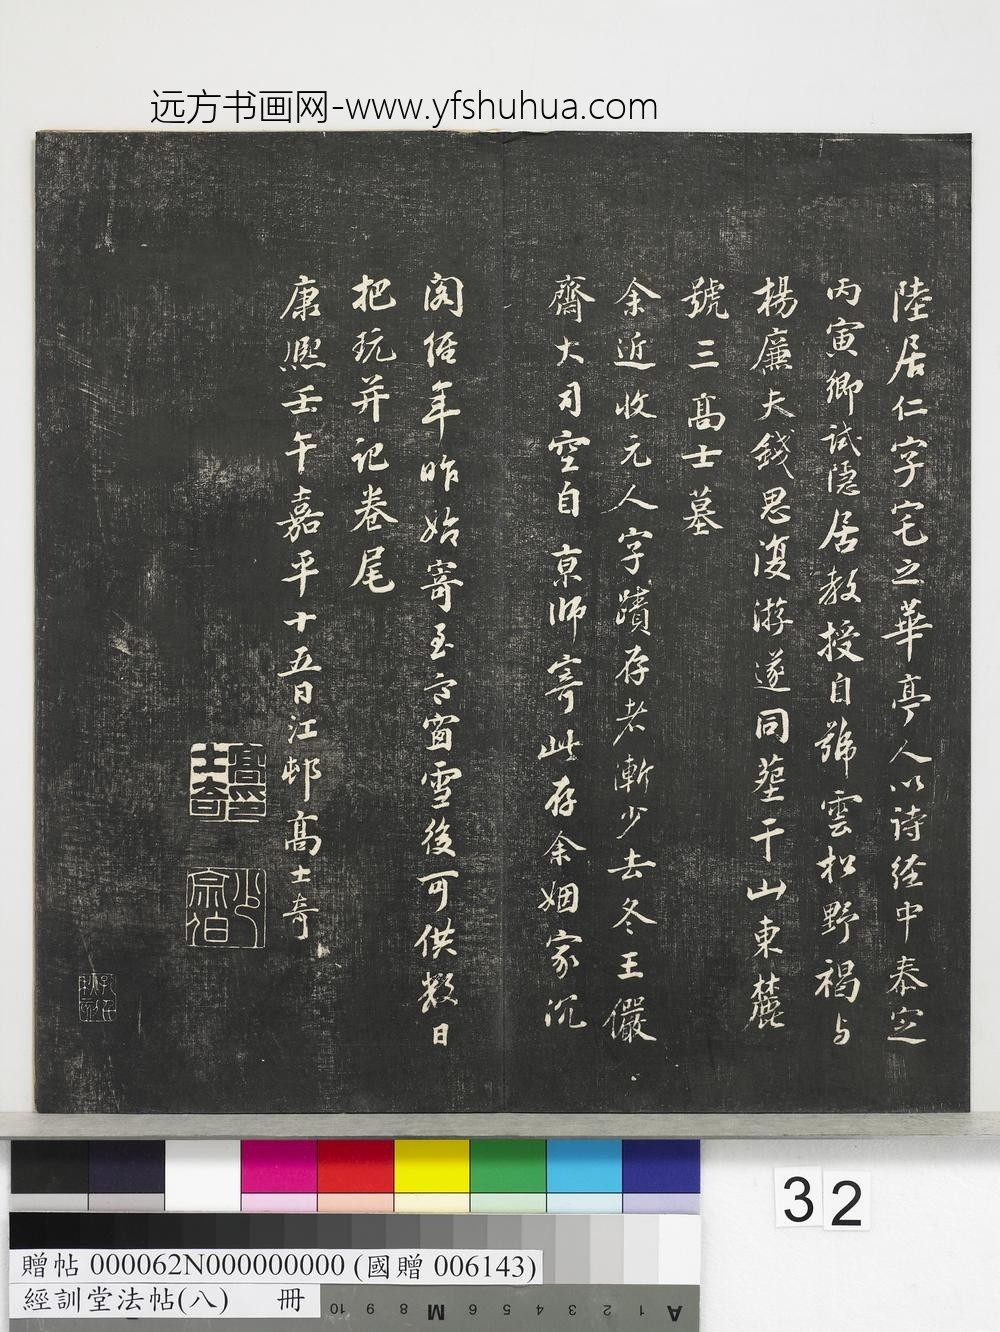 远方书画网-www.yfshuhua.com
陸居仁字宅之華亭人以诗经中泰定
丙寅鄉試隱居教授自號雲松野褐与
楊廉夫錢思復游遂同塟于山東麓
號三高士墓
余近收元人字蹟存者漸少去冬王儼
齋大司空自京師寄此存余姻家沉
閣經年昨始寄至雪後可供數日
把玩并记卷尾
康熙壬午嘉平十五日江邨高士奇
32
贈帖 000062N000000000 (國贈 006143)
經訓堂法帖(八) 冊
10 9 8 M 6 5 4 3 2 1 A